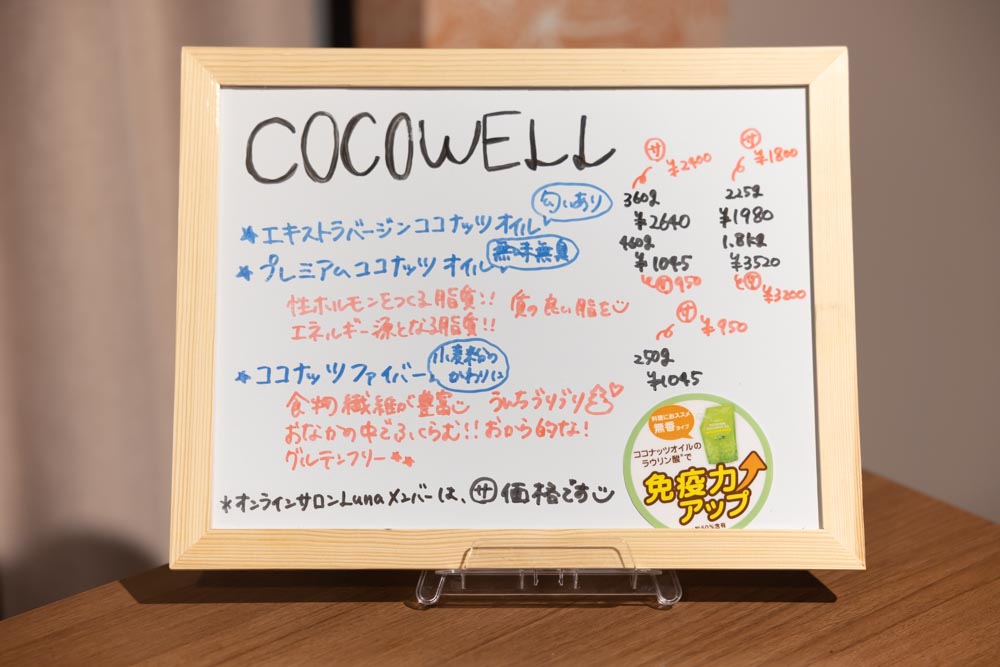 COCOWELL
*エキストラバージンココナッツオイル 匂いあり
*プレミアムココナッツオイル 無味無臭
性ホルモンをつくる脂質!! 質の良い脂を
エネルギー源となる脂質!!
*ココナッツファイバー 小麦粉の
かわりに
食物繊維が豊富 うんちブリブリ
おなかの中でふくらむ!! おから的な!
グルテンフリー**
*オンラインサロンLunaメンバーは、サ価格です
サ ¥2400
360g
¥2640
460g
¥1045
サ 950
サ ¥1800
225g
¥1980
1.8kg
¥3520
サ ¥3200
サ ¥950
250g
¥1045
料理におススメ
無香タイプ
ココナッツオイルの
ラウリン酸*で
免疫力
アップ